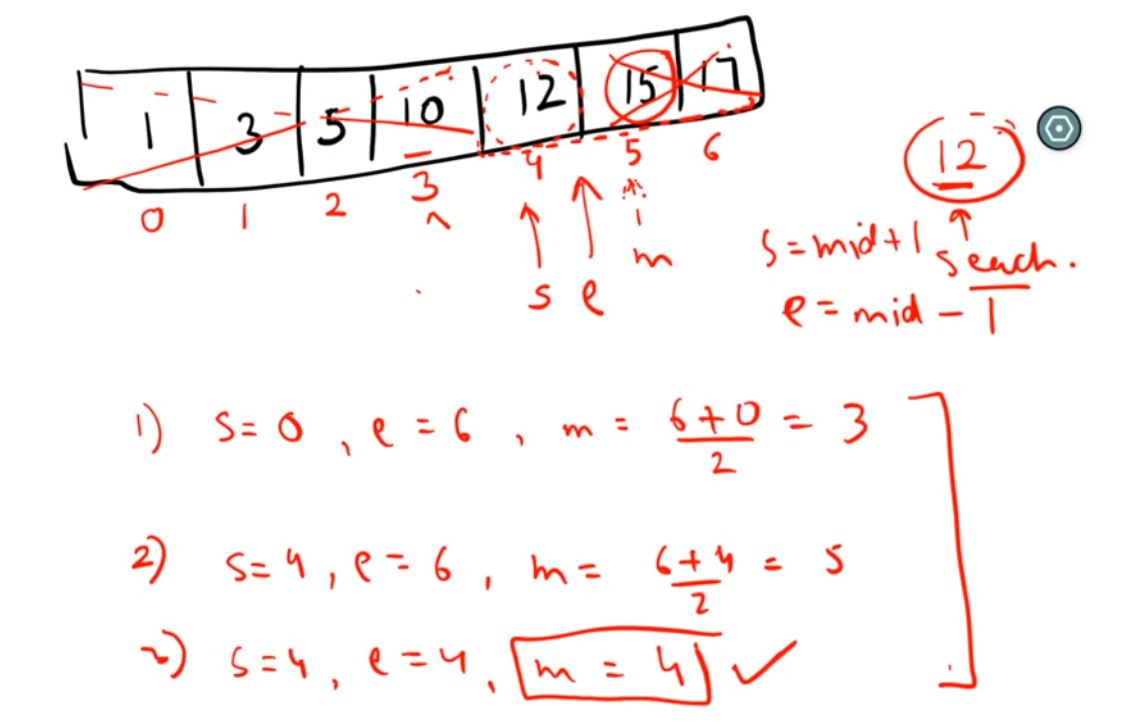 1 3 5 10 12 15 17
0 1 2 3 4 5 6
12
s e m
s = mid + 1 seach.
e = mid - 1
1) s = 0, e = 6, m = 6+0/2 = 3
2) s = 4, e = 6, m = 6+4/2 = 5
s = 4, e = 4, m = 4 ✓